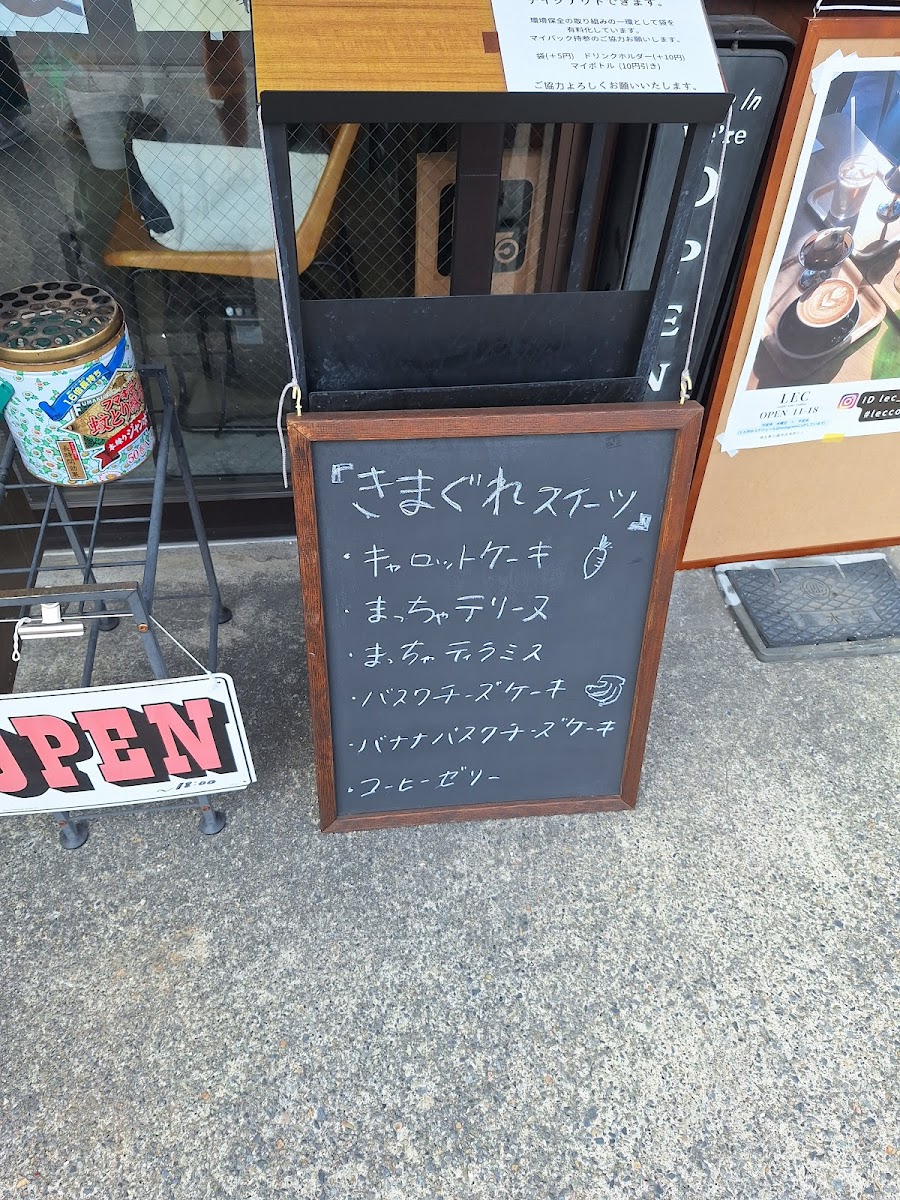 テイクアウトできます。
環境保全の取り組みの一環として袋を
有料化しています。
マイバック持参のご協力お願いします。
袋(+5円) ドリンクホルダー(+10円)
マイボトル (10円引き)
ご協力よろしくお願いいたします。
In
We're
OPEN
LEC
OPEN 11-18
ID lec_
#lecco
『きまぐれスイーツ』
・キャロットケーキ
・まっちゃテリーヌ
・まっちゃティラミス
・バスクチーズケーキ
・バナナバスクチーズケーキ
・コーヒーゼリー
OPEN
~18:00